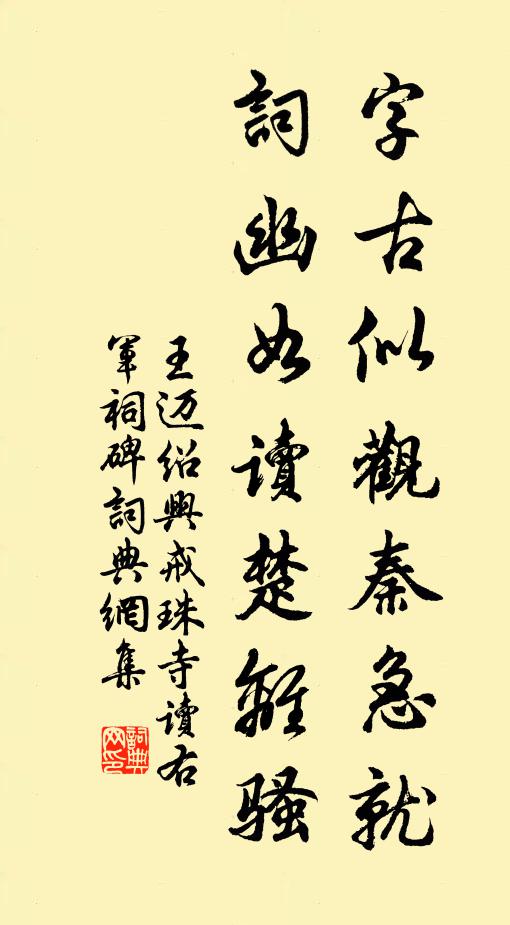 字古似觀秦急就
詞幽如讀楚離騷
王迈绍興戒珠寺讀右
軍祠碑詞典網集
詞典
网印